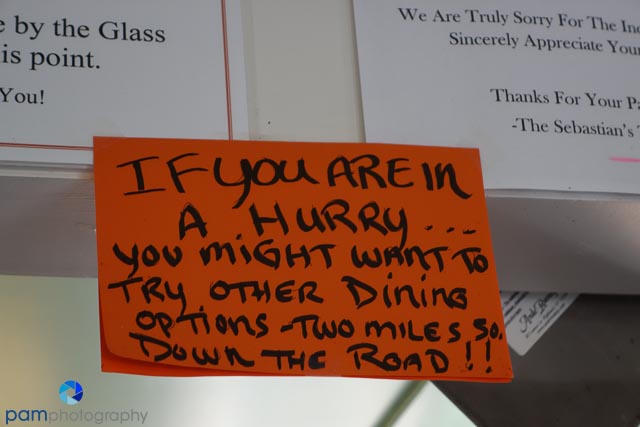 e by the Glass
is point.
You!
We Are Truly Sorry For The
Sincerely Appreciate
Thanks For Your
-The Sebastian's
IF YOU ARE IN
A HURRY....
YOU MIGHT WANT TO
TRY OTHER DINING
OPTIONS - TWO MILES SO.
DOWN THE ROAD!!
pamphotography